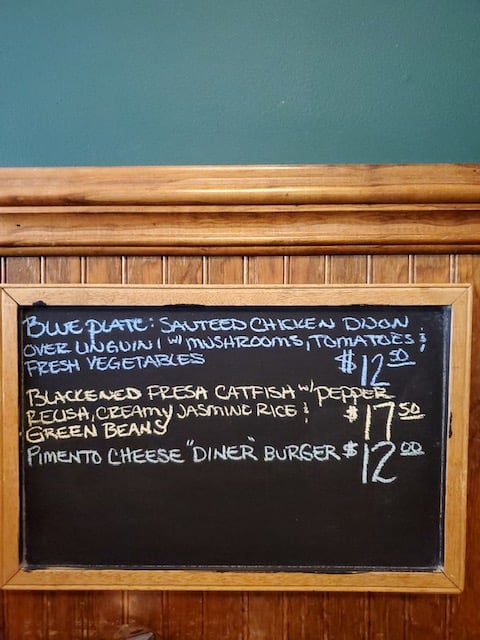 BLUE PLATE: SAUTEED CHICKEN DIJON
OVER LINGUINI W/ MUSHROOMS, TOMATOES &
FRESH VEGETABLES $12 50
BLACKENED FRESH CATFISH W/ PEPPER
RELISH, CREAMY JASMINE RICE & $17 50
GREEN BEANS
PIMENTO CHEESE "DINER" BURGER $12 00